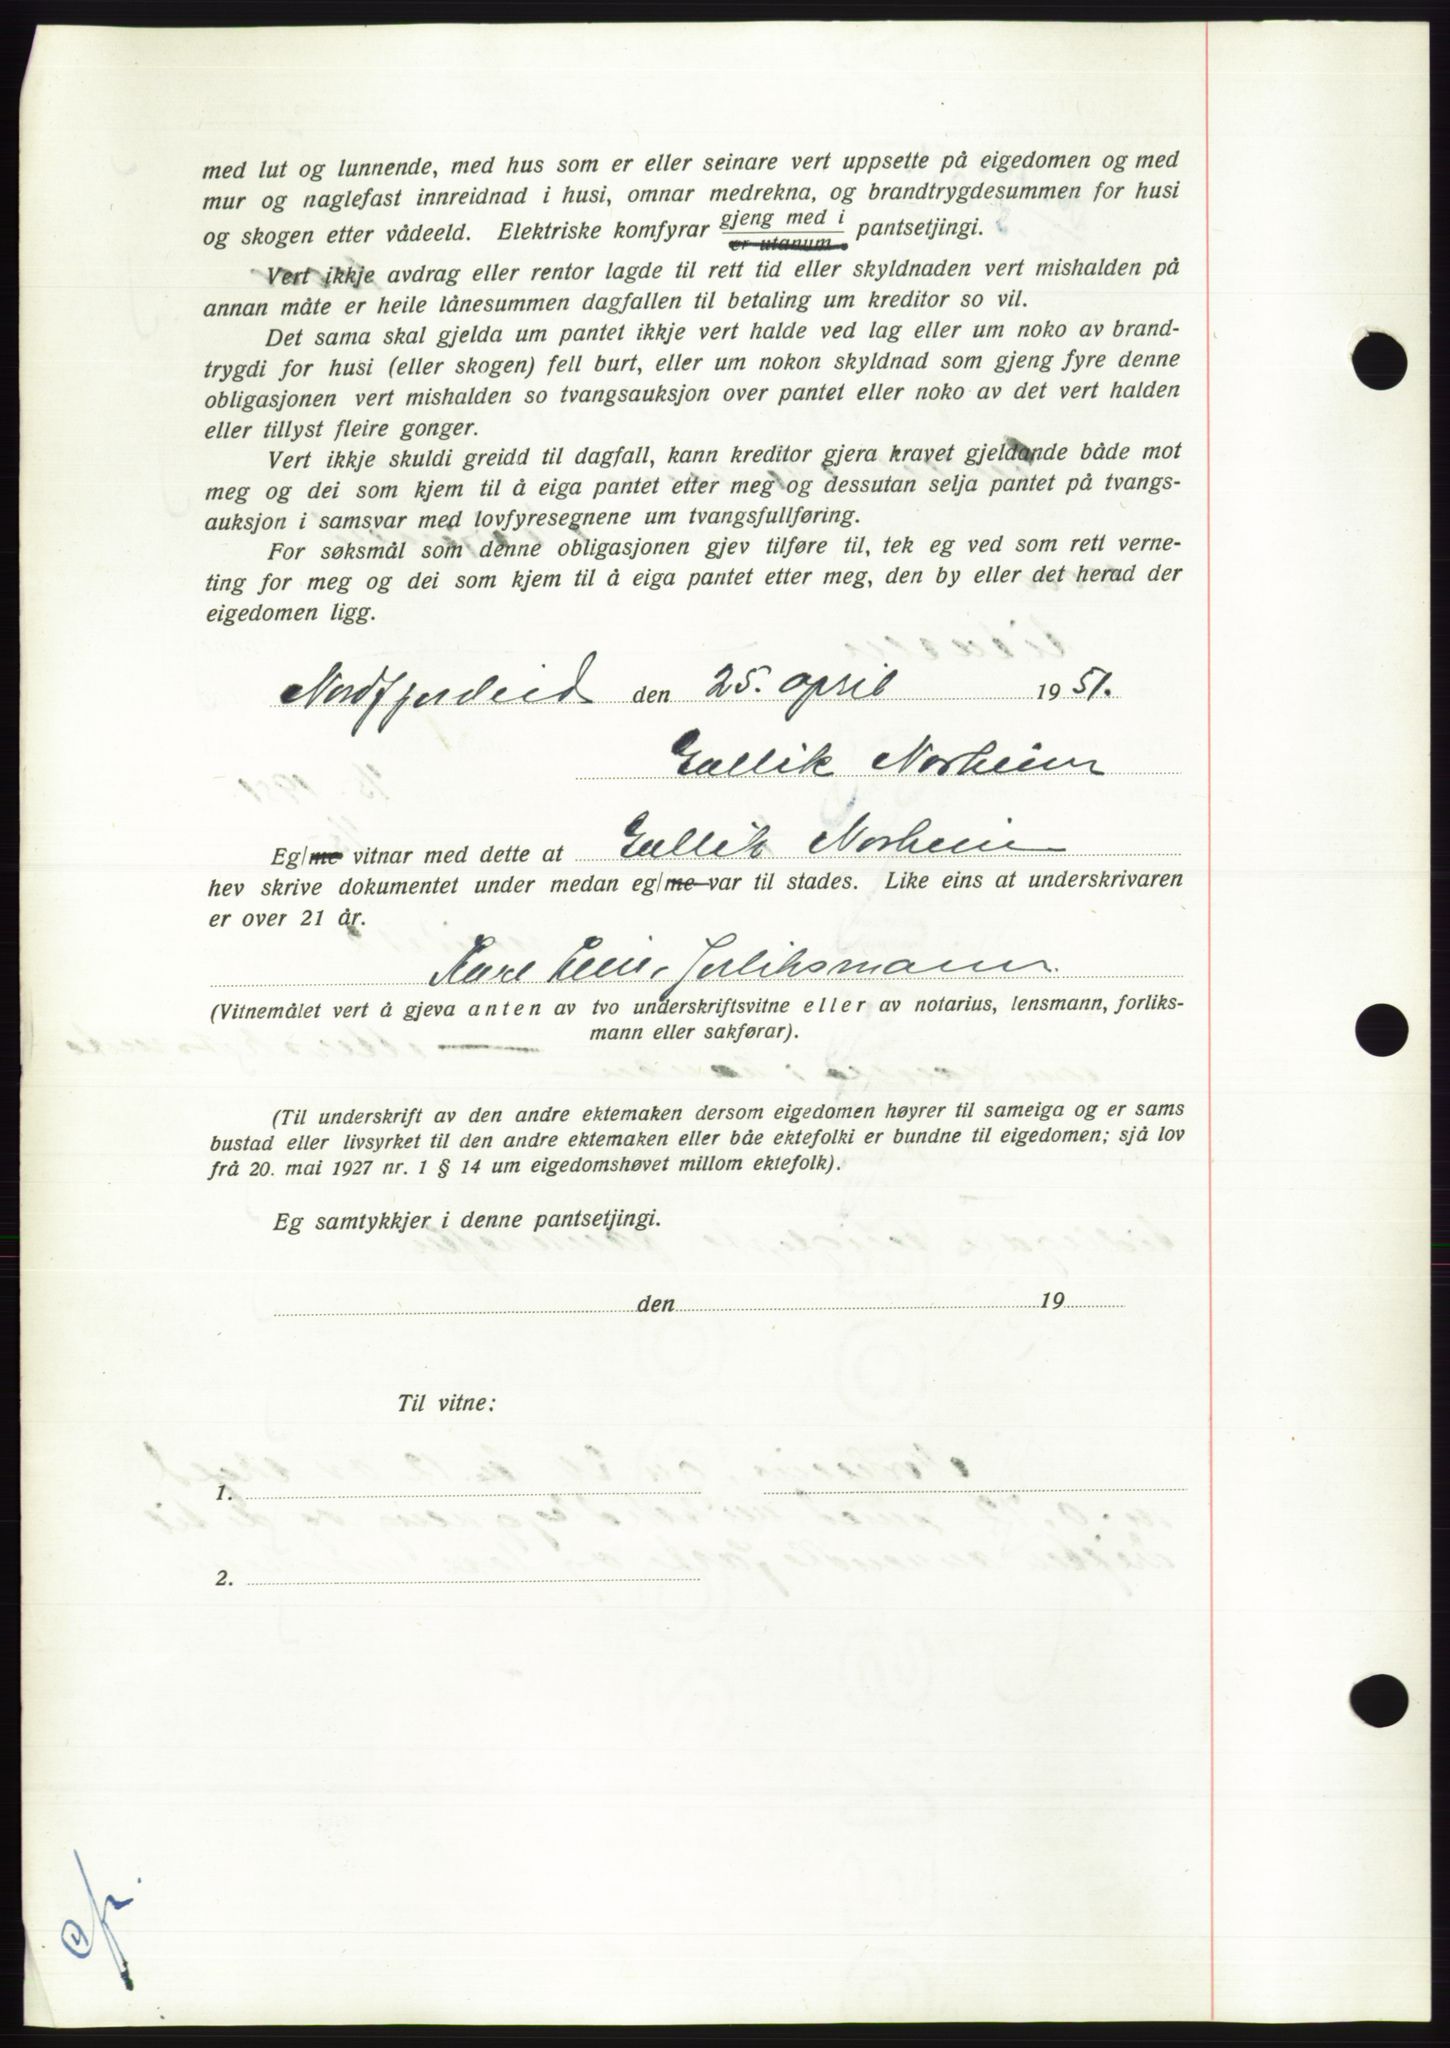 med lut og lunnende, med hus som er eller seinare vert uppsette på eigedomen og med
mur og naglefast innreidnad i husi, omnar medrekna, og brandtrygdesummen for husi
og skogen etter vådeeld. Elektriske komfyrar gjeng med i er utanum pantsetjingi.
Vert ikkje avdrag eller rentor lagde til rett tid eller skyldnaden vert mishalden på
annan måte er heile lånesummen dagfallen til betaling um kreditor so vil.
Det sama skal gjelda um pantet ikkje vert halde ved lag eller um noko av brand-
trygdi for husi (eller skogen) fell burt, eller um nokon skyldnad som gjeng fyre denne
obligasjonen vert mishalden so tvangsauksjon over pantet eller noko av det vert halden
eller tillyst fleire gonger.
Vert ikkje skuldi greidd til dagfall, kann kreditor gjera kravet gjeldande både mot
meg og dei som kjem til å eiga pantet etter meg og dessutan selja pantet på tvangs-
auksjon i samsvar med lovfyresegnene um tvangsfullføring.
For søksmål som denne obligasjonen gjev tilføre til, tek eg ved som rett verne-
ting for meg og dei som kjem til å eiga pantet etter meg, den by eller det herad der
eigedomen ligg.
Nordfjordeid den 25. april 1951.
Gullik Norheim
Eg/me vitnar med dette at Gullik Norheim
hev skrive dokumentet under medan eg/me var til stades. Like eins at underskrivaren
er over 21 år.
Forliksmann.
(Vitnemålet vert å gjeva anten av tvo underskriftsvitne eller av notarius, lensmann, forliks-
mann eller sakførar).
(Til underskrift av den andre ektemaken dersom eigedomen høyrer til sameiga og er sams
bustad eller livsyrket til den andre ektemaken eller båe ektefolki er bundne til eigedomen; sjå lov
frå 20. mai 1927 nr. 1 § 14 um eigedomshøvet millom ektefolk).
Eg samtykkjer i denne pantsetjingi.
den 19
Til vitne:
1.
2.